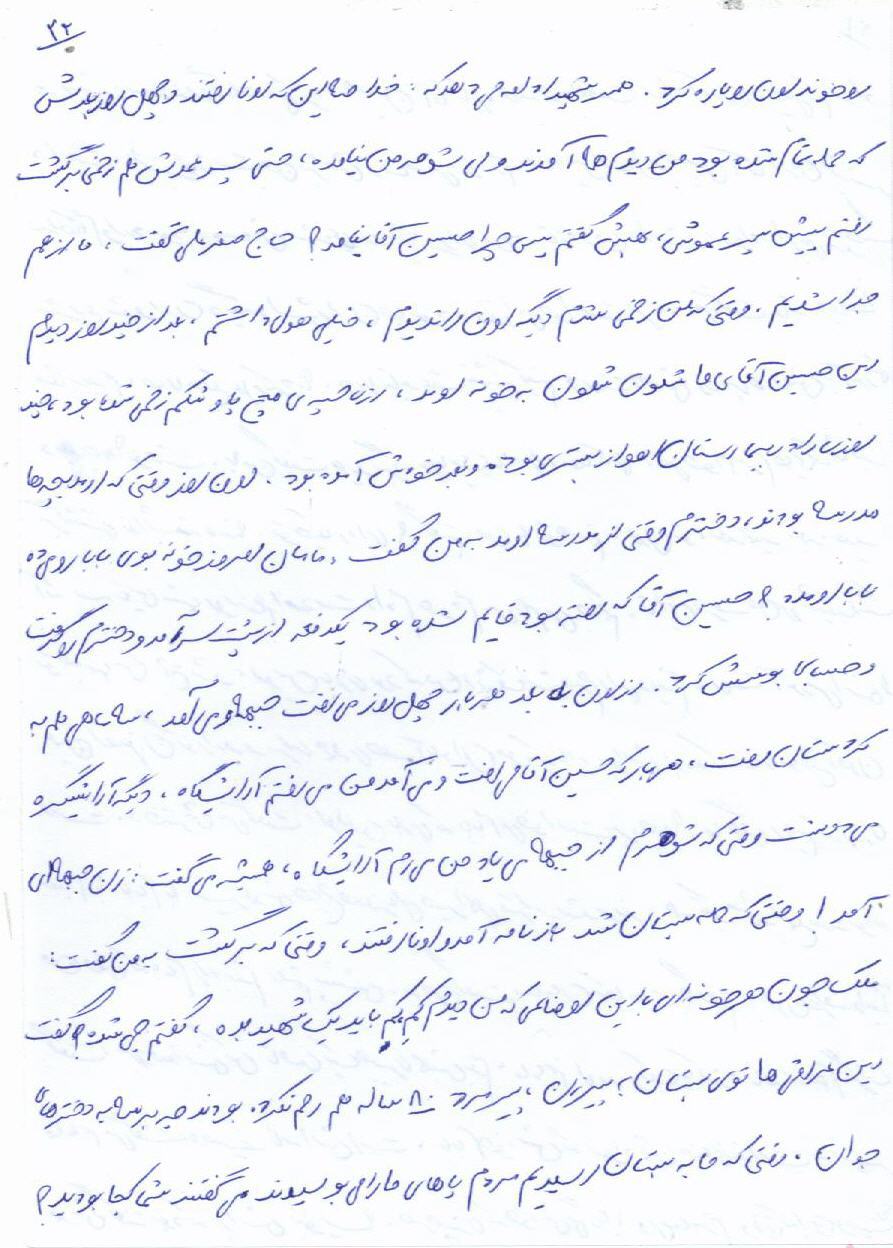 ۳۲
رو خوند اون رو پاره کرد. همسر شهید ادامه می دهد که: خدا این که اونا رفتند و چهل روز بعدش
که حمله تمام شده بود من دیدم ها آمدند ولی شوهر من نیامده، حتی پسر عموش هم زخمی برگشت
رفتم پیش پسر عموش، بهش گفتم پس چرا حسین آقا نیامد؟ حاج صفرعلی گفت، ما از هم
جدا شدیم. وقتی که من زخمی شدم دیگه اون را ندیدم، خیلی هول داشتم، بعد از چند روز دیدم
این حسین آقای ما شلون شلون به خونه اومد، از ناحیه ی مچ پا و شکم زخمی شده بود، چند
روزی را در بیمارستان اهواز بستری بوده و بعد خودش آمده بود. اون روز وقتی که اومد بچه ها
مدرسه بودند، دخترم وقتی از مدرسه اومد به من گفت، مامان امروز خونه بوی بابا رو می ده
بابا اومده؟ حسین آقا که رفته بود قایم شده بود یکدفعه از پشت سر آمد و دخترم رو گرفت
و حسابی بوسش کرد. از اون به بعد هر بار چهل روز می رفت جبهه و می آمد، سالها هی هم به
کردستان رفت، هر بار که حسین آقا می رفت و می آمد من می رفتم آرایشگاه، دیگه آرایشگره
می دونست وقتی که شوهرم از جبهه می یاد من می رم آرایشگاه، همیشه می گفت: زن جبهه ای
آمد! وقتی که حمله بستان شد باز نامه آمد و اونا رفتند، وقتی که برگشت به من گفت:
ملک جون هر خونه ای با این اوضاعی که من دیدم کم کم باید یک شهید بده، گفتم چی شده؟ گفت
این عراقی ها توی بستان به پیرزن، پیرمرد ۸۰ ساله هم رحم نکرده بودند چه برسه به دخترهای
جوان. وقتی که ما به بستان رسیدیم مردم پاهای ما را می بوسیدند می گفتند شما کجا بودید؟